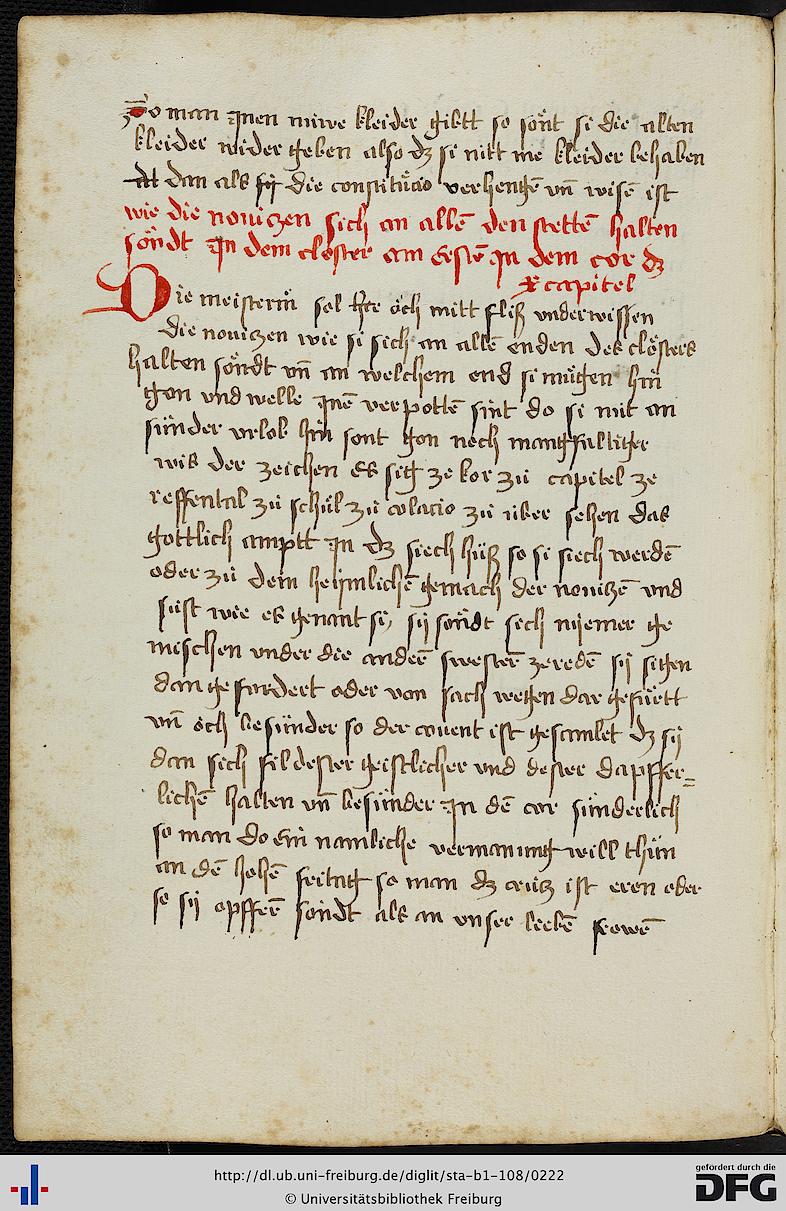 So man Jnen nuwe kleider gibtt so sönt si die alten
kleider wider geben also dz si nitt me kleider behaben
dan als sÿ die constitucio verhengē vn̄ wisē ist
wie die novitzen sich an allē den stettē halten
söndt Jn dem closter am erstē Jn dem cor dz
x capitel
Die meisterin sol öch mitt fliß vnderwissen
die novitzen wie si sich an allē enden des clösters
halten söndt vn̄ an welchem end si mügen hin
gon vnd welle Jnē verpottē sint do si nit an
sunder vrlob hin sont gon nach mangfaltiger
wis der zeichen es sig ze kor zů capitel ze
reffental zů schůl zů colacio zů über sehen das
gottlich amptt Jn dz siech hüß so si siech werdē
oder zů dem heÿmlichē gemach der novitzē vnd
süst wie es genant si, sÿ söndt sich nyemer ge
mischen vnder die anderē swesterē ze redē sÿ sigen
dan gefordert oder von sach wegen dar gefürtt
vn̄ öch besunder so der covent ist gesamlet dz sÿ
dan sich fil dester geistlicher vnd dester dapffer=
lichē halten vn̄ besünder Jn dē cor sünderlich
so man do ein namliche vermanung will thün
an dē hohē fritag so man dz crütz ist eren oder
so sÿ opfferē söndt als an vnser liebē frowē
http://dl.ub.uni-freiburg.de/diglit/sta-b1-108/0222
© Universitätsbibliothek Freiburg
gefördert durch die
DFG